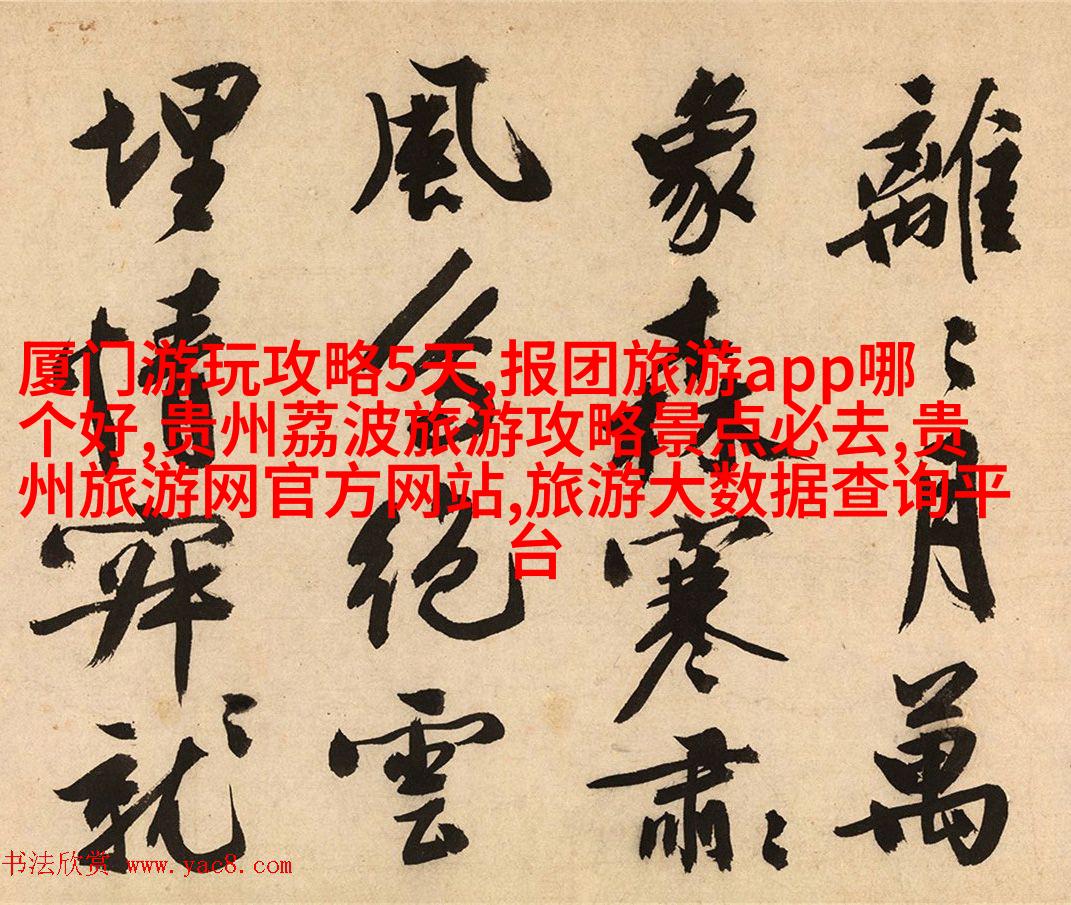 厦门游玩攻略5天,报团旅游app哪
个好,贵州荔波旅游攻略景点必去,贵
州旅游网官方网站,旅游大数据查询平
台
離〻月萬
象森寒肅〻
風絕雲
埋就〻
书法欣赏 www.yac8.com